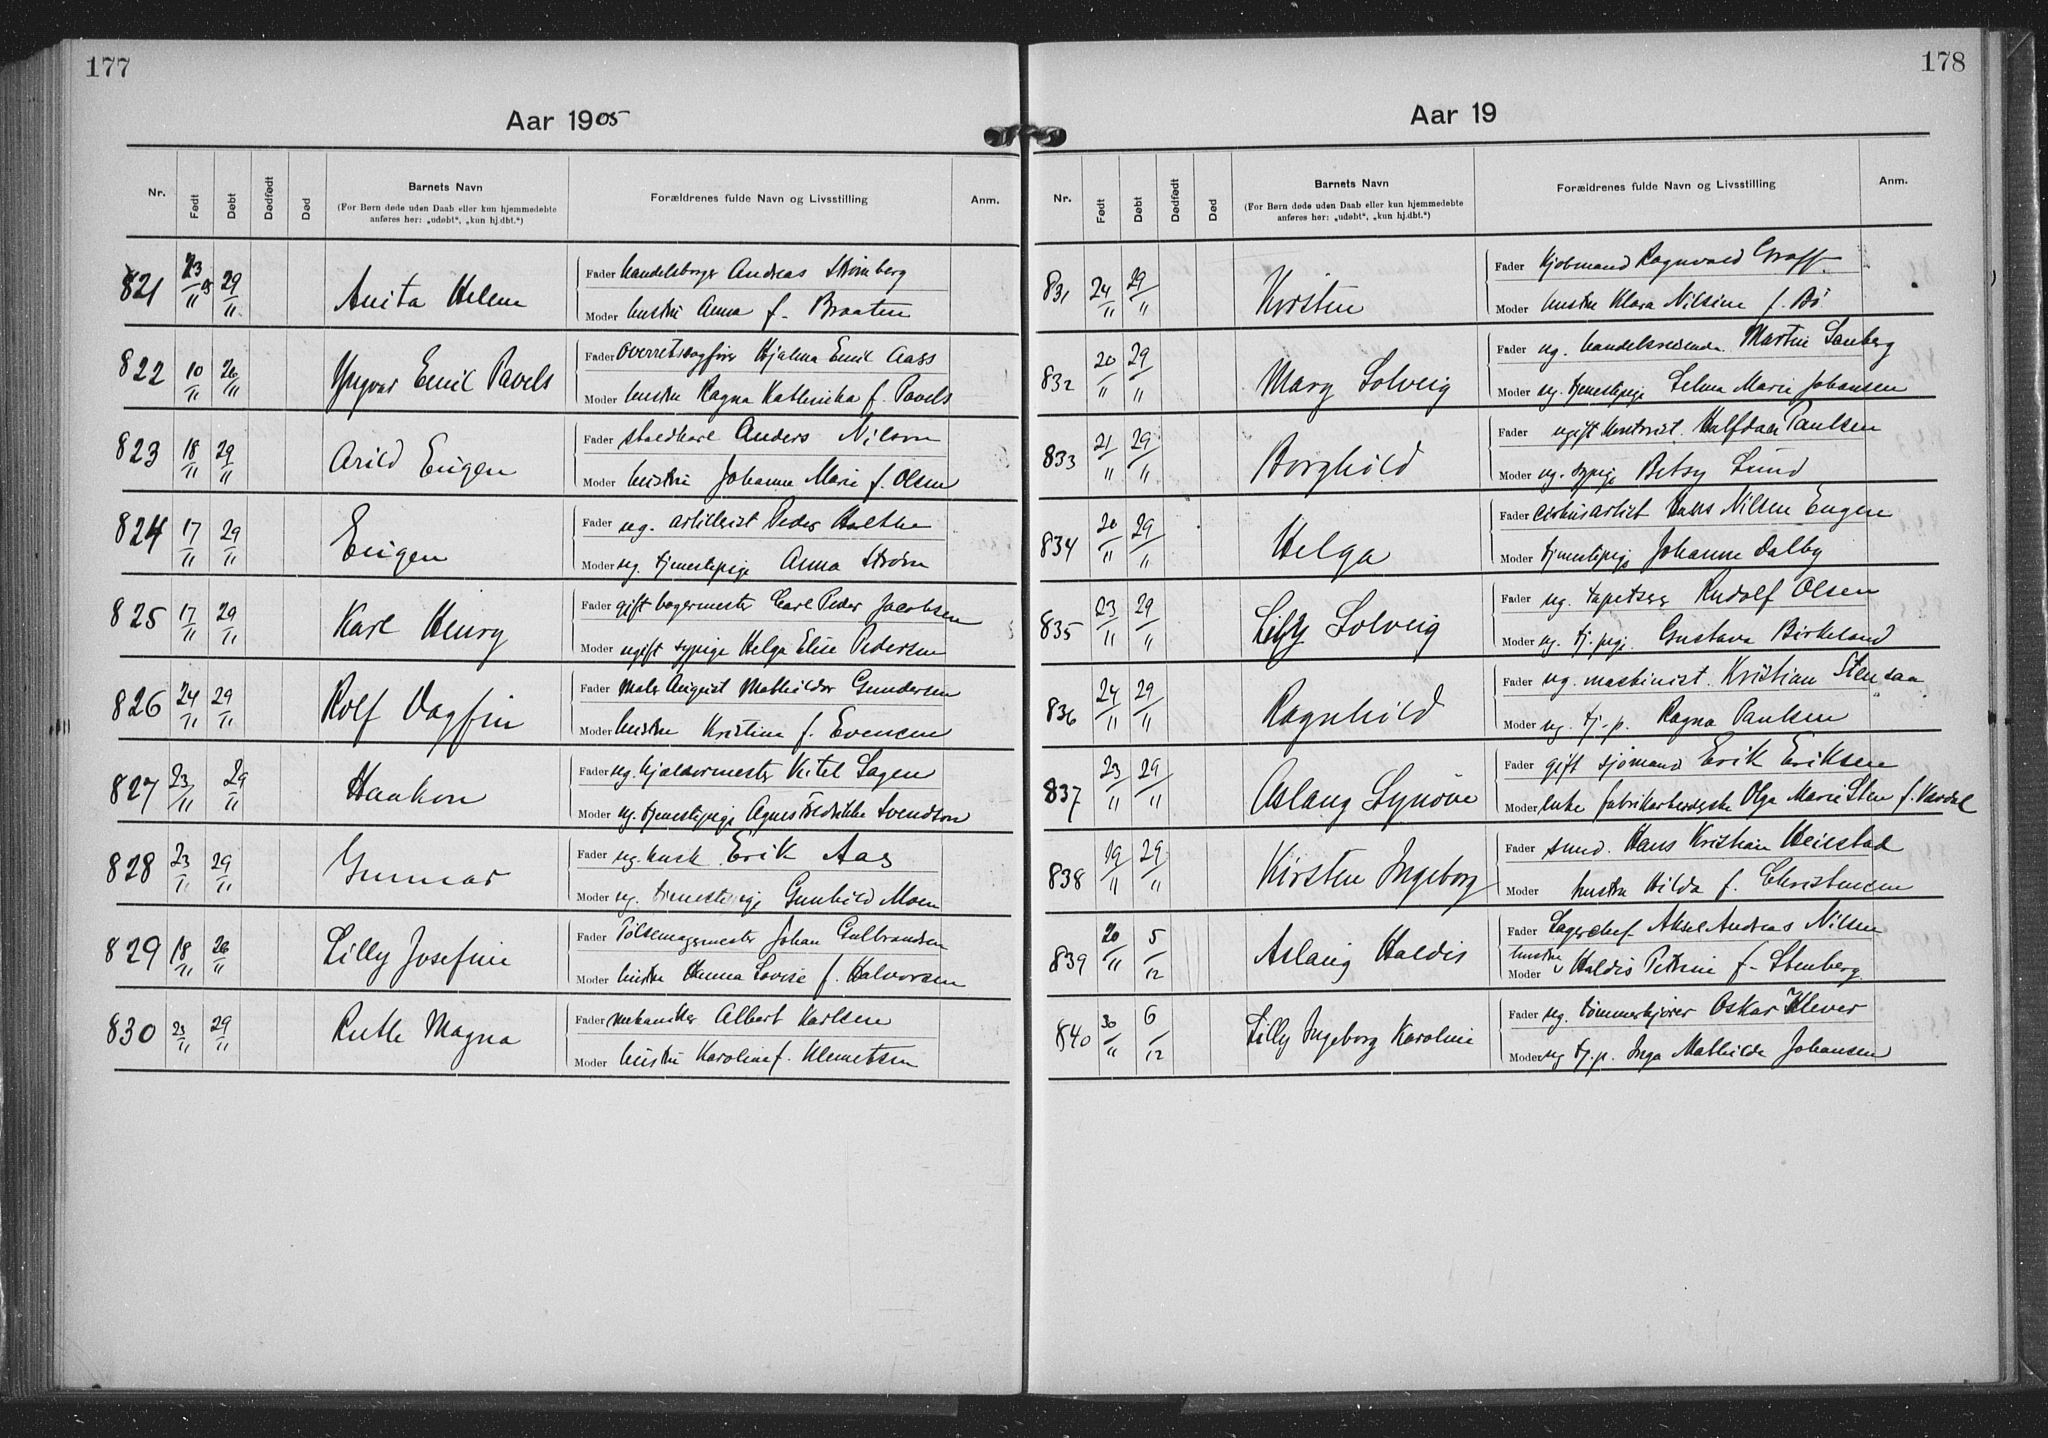 177
Aar 1905
Nr. Født Døbt Dødfødt Død Barnets Navn Forældrenes fulde Navn og Livsstilling Anm.
(For Børn døde uden Daab eller kun hjemmedøbte
anføres her: „udøbt“, „kun hj.dbt.“)
821 23/11 05 29/11 Anita Helene Fader handelsborger Andreas Strømberg
Moder hustru Anna f. Braaten
822 10/11 26/11 Yngvar Emil Pavels Fader overretssagfører Hjalmar Emil Aass
Moder hustru Ragna Kathinka f. Pavels
823 18/11 29/11 Arild Eugen Fader staldkarl Anders Nilsen
Moder hustru Johanne Marie f. Olsen
824 17/11 29/11 Eugen Fader ug. artillerist Peder Holthe
Moder ug. tjenestepige Anna Strøm
825 17/11 29/11 Karl Henry Fader gift bagermester Carl Peder Jacobsen
Moder ugift sypige Helga Elise Pedersen
826 24/11 29/11 Rolf Dagfin Fader Maler August Mathildor Gundersen
Moder hustru Kristine f. Evensen
827 23/11 29/11 Haakon Fader ug. kjældermester Ketel Hagen
Moder ug. tjenestepige Agnes Fredrikke Svendsen
828 23/11 29/11 Gunnar Fader ug. kusk Erik Aas
Moder ug. tjenestepige Gunhild Moen
829 18/11 26/11 Lilly Josefine Fader Pølsemagermester Johan Gulbrandsen
Moder hustru Hanna Lovise f. Halvorsen
830 23/11 29/11 Ruth Magna Fader mekaniker Albert Karlsen
Moder hustru Karoline f. Klemetsen
178
Aar 19
Nr. Født Døbt Dødfødt Død Barnets Navn Forældrenes fulde Navn og Livsstilling Anm.
(For Børn døde uden Daab eller kun hjemmedøbte
anføres her: „udøbt“, „kun hj.dbt.“)
831 24/11 29/11 Kirsten Fader Kjøbmand Ragnvald Graff
Moder hustru Klara Nilsine f. Bø
832 20/11 29/11 Mary Solveig Fader ug. handelsreisende Martin Sanberg
Moder ug. tjenestepige Selma Marie Johansen
833 21/11 29/11 Borghild Fader ugift kontorist Halfdan Paulsen
Moder ug. sypige Betsy Lund
834 20/11 29/11 Helga Fader cirkusartist Hans Nilsen Engen
Moder tjenestepige Johanne Dalby
835 23/11 29/11 Lilly Solveig Fader ug. tapetserer Rudolf Olsen
Moder ug. tj. pige Gustava Birkeland
836 24/11 29/11 Ragnhild Fader ug. maskinist Kristian Stensaa
Moder ug. tj.p. Ragna Paulsen
837 23/11 29/11 Aslaug Synøve Fader gift sjømand Erik Eriksen
Moder enke fabrikarbeiderske Olga Marie Sten f. Vardal
838 19/11 29/11 Kirsten Ingeborg Fader smed Hans Kristian Heiestad
Moder hustru Hilda f. Christensen
839 20/11 5/12 Aslaug Haldis Fader Lagerchef Aksel Andreas Nilsen
Moder hustru Haldis Petrine f. Stenberg
840 30/11 6/12 Lilly Ingeborg Karoline Fader ug. tømmerkjører Oskar Klever
Moder ug tj.p. Inga Mathilde Johansen